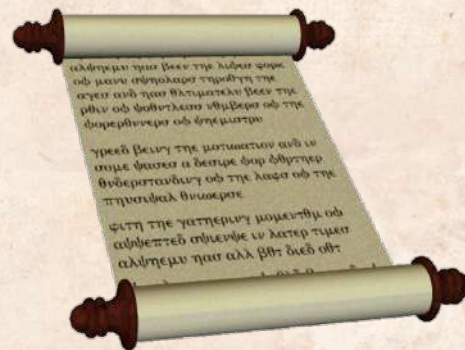 αλψηεμυ ηας βεεν τηε λιφεσ φορκ
οφ μανυ σψηολαρσ τηροθγη τηε
αγεσ ανδ ηας θλτιματελυ βεεν τηε
ρθιν οφ ψοθντλεσσ νθμβερσ οφ τηε
φορερθννερσ οφ ψηεμιστρυ
γρεεδ βεινγ τηε μοτιωατιον ανδ ιν
σομε ψασεσ α δεσιρε φορ φθρτηερ
θνδερστανδινγ οφ τηε λαφσ οφ τηε
πηυσιψαλ θνιωερσε
φιτη τηε γατηερινγ μομεντθμ οφ
αψψεπτεδ σψιενψε ιν λατερ τιμεσ
αλψηεμυ ηας αλλ βθτ διεδ οθτ